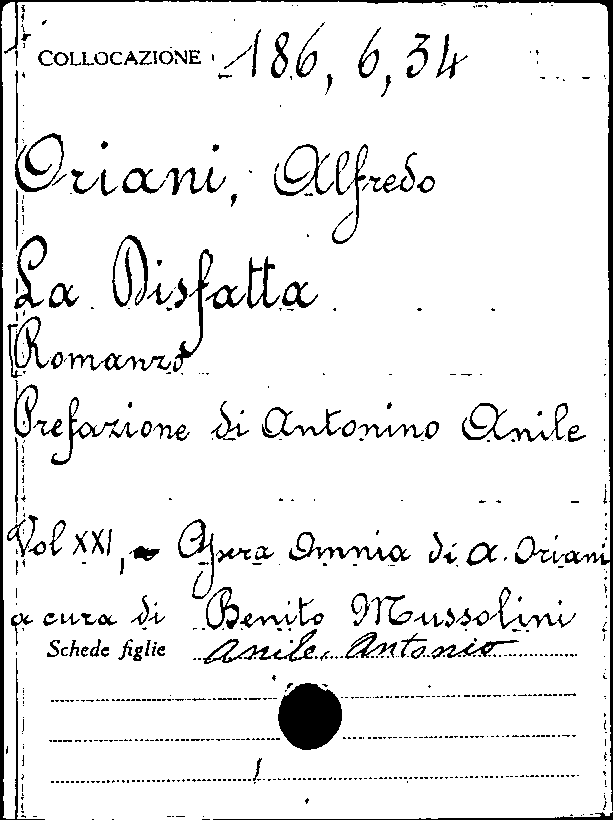 COLLOCAZIONE 186, 6, 34
Oriani, Alfredo
La Disfatta
[Romanzo
Prefazione di Antonino Anile
Vol XXI, Opera Omnia di A. Oriani
a cura di Benito Mussolini
Schede figlie Anile, Antonio